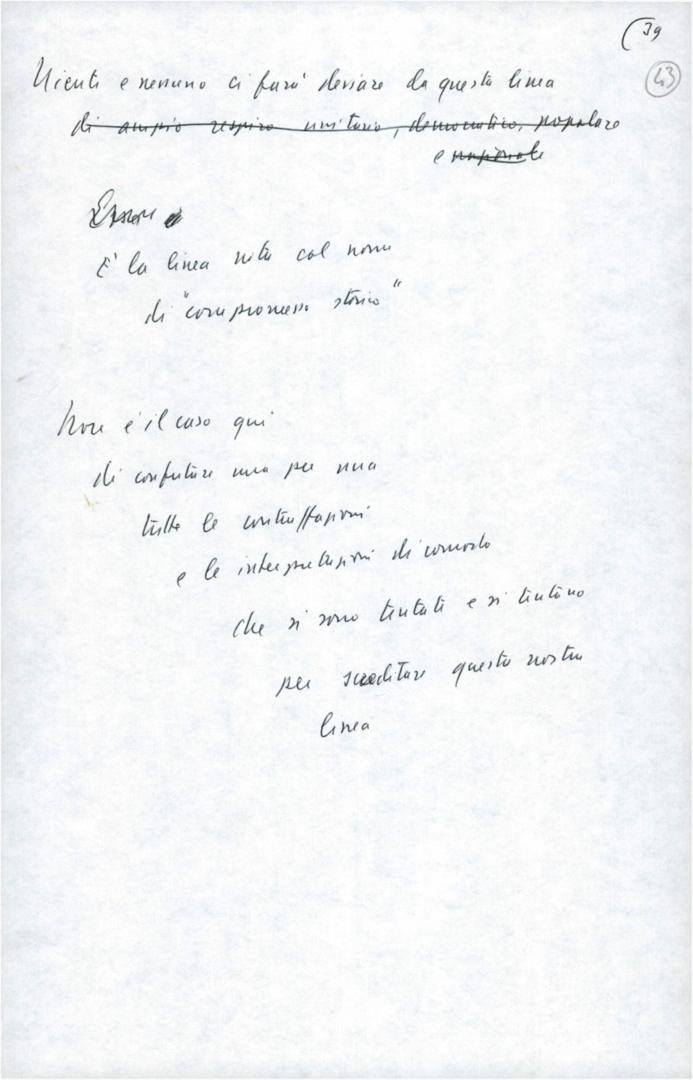 39
43
Niente e nessuno ci farà deviare da questa linea
di ampio respiro unitario, democratico, popolare
e nazionale
È la linea nota col nome
di "compromesso storico"
Non è il caso qui
di confutare una per una
tutte le contraffazioni
e le interpretazioni di comodo
che si sono tentate e si tentano
per screditare questa nostra
linea